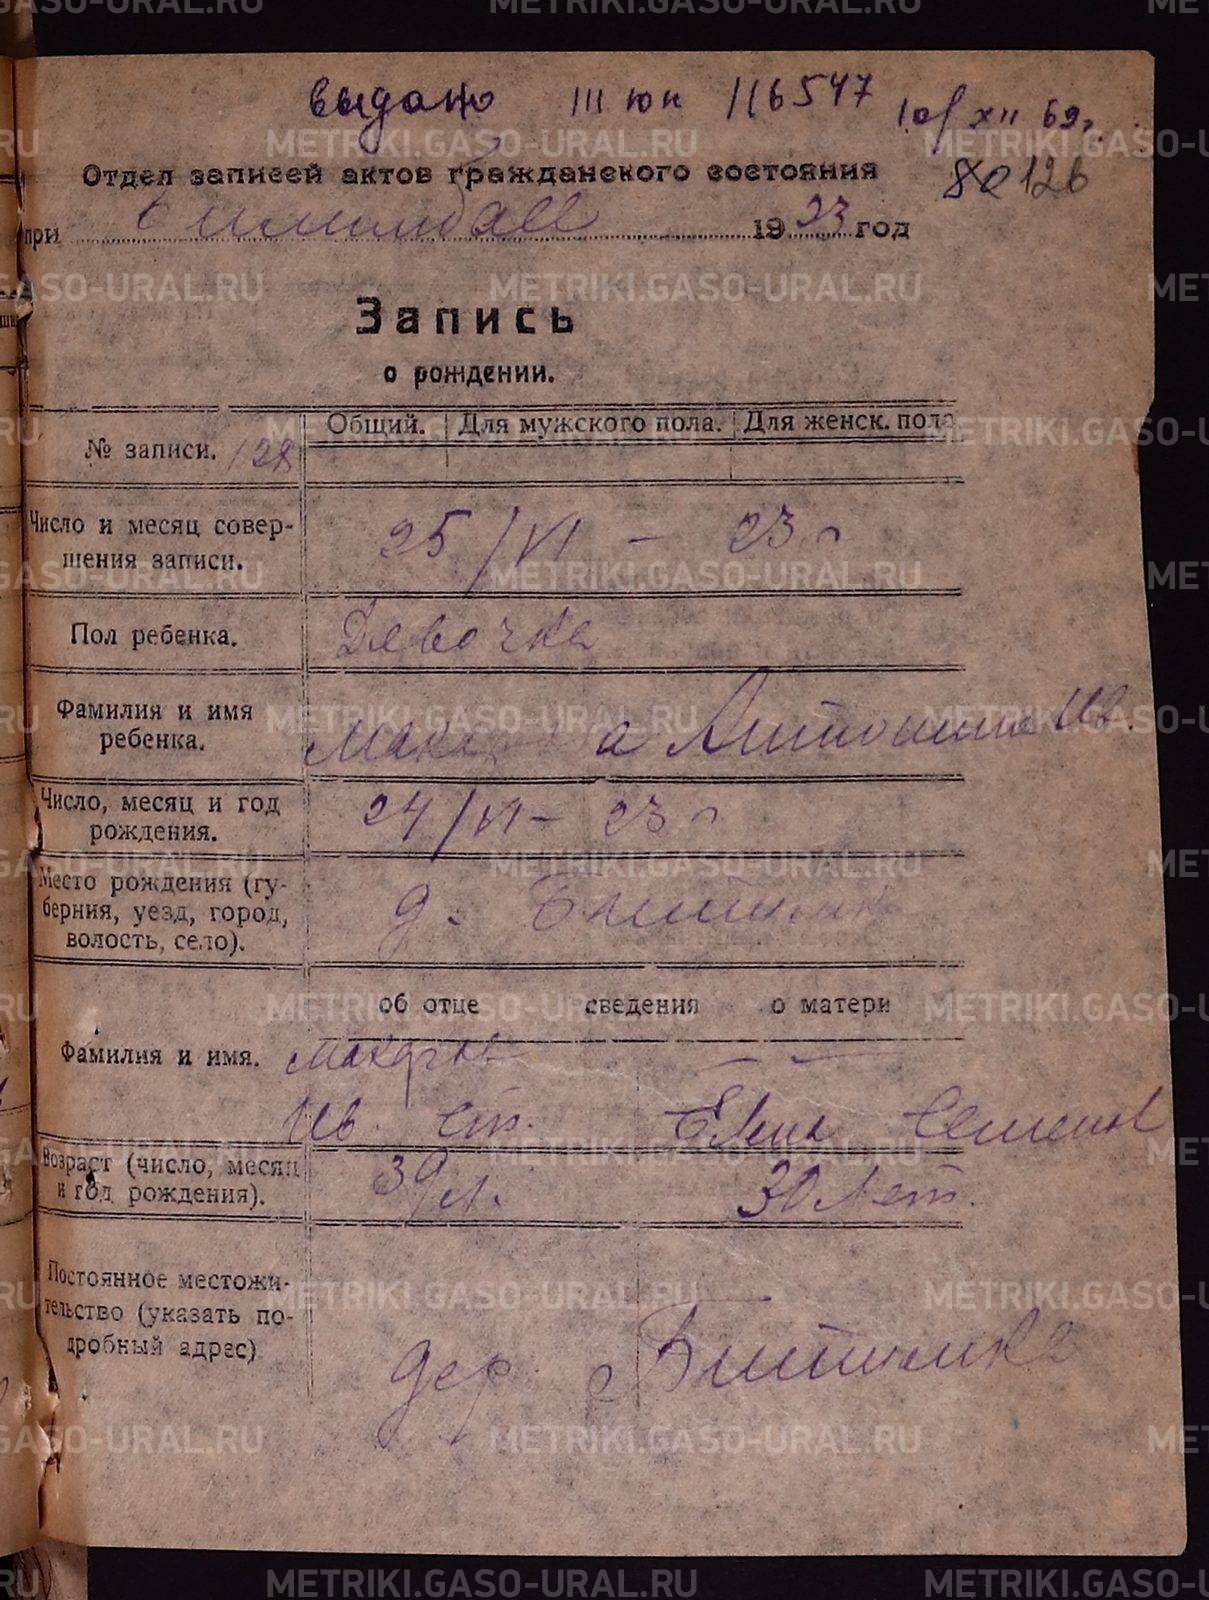 METRIKI.GASO-URAL.RU
выдано III юн 116547 10/XII 69г.
Отдел записей актов гражданского состояния 80 126
при 1923 год
Запись
о рождении.
№ записи. 128 Общий. Для мужского пола. Для женск. пола
Число и месяц совер-
шения записи. 25/VI – 23 г
Пол ребенка. Девочка
Фамилия и имя
ребенка. Мака а Антонина Ив.
Число, месяц и год
рождения. 24/VI – 23 г
Место рождения (гу-
берния, уезд, город,
волость, село). д.
об отце сведения о матери
Фамилия и имя. Макаров – –
Ив. Ст. Елена Семенов
Возраст (число, месяц
и год рождения). 39 л. 30 лет.
Постоянное местожи-
тельство (указать по-
дробный адрес) дер.